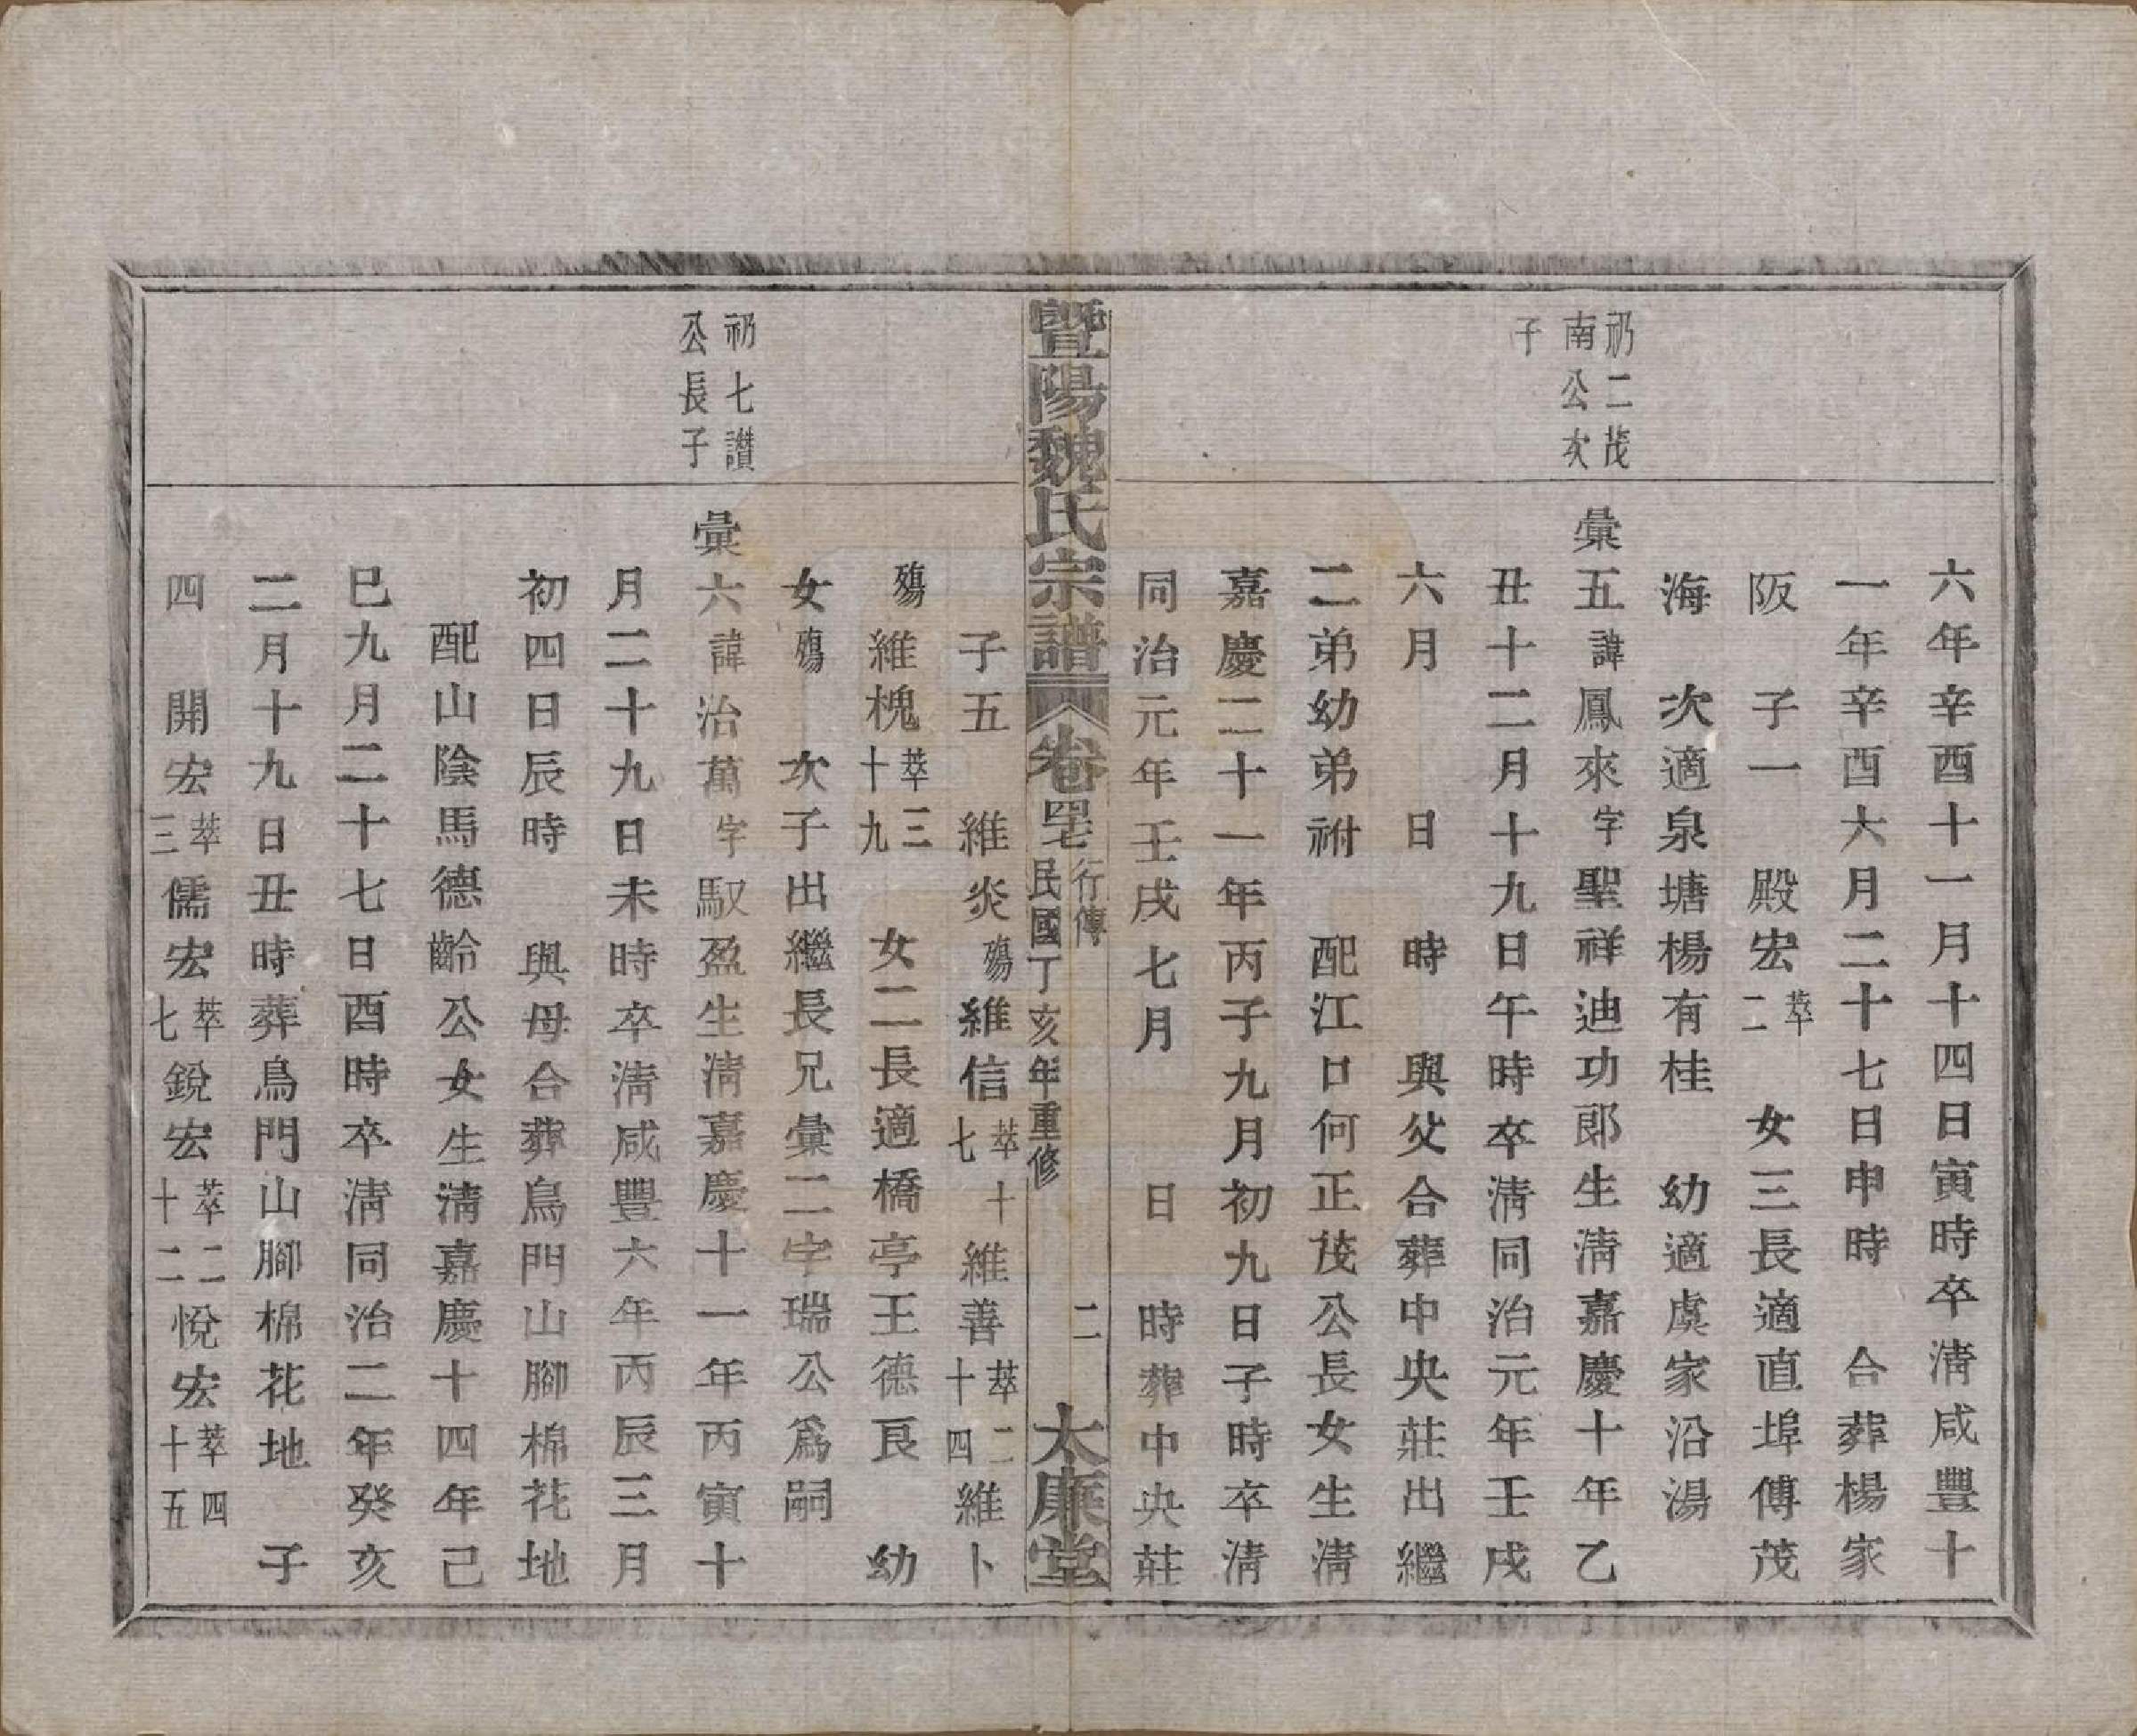 六年辛酉十一月十四日寅時卒淸咸豐十
一年辛酉六月二十七日申時 合葬楊家
阪 子一 殿宏萃二 女三長適直埠傅茂
海 次適泉塘楊有桂 幼適虞家沿湯
礽二茂南公次子
彙五諱鳳來字聖祥迪功郎生淸嘉慶十年乙
丑十二月十九日午時卒淸同治元年壬戌
六月 日 時 與父合葬中央莊出繼
二弟幼弟祔 配江口何正茂公長女生淸
嘉慶二十一年丙子九月初九日子時卒淸
同治元年壬戌七月 日 時葬中央莊
暨陽魏氏宗譜 卷 行傳 民國丁亥年重修 二 太廉堂
子五 維炎殤維信萃十七維善萃二十四維卜
殤維槐萃三十九 女二長適橋亭王德良 幼
女殤 次子出繼長兄彙二字瑞公爲嗣
礽七讚公長子
彙六諱治萬字馭盈生淸嘉慶十一年丙寅十
月二十九日未時卒淸咸豐六年丙辰三月
初四日辰時 與母合葬鳥門山腳棉花地
配山陰馬德齡公女生淸嘉慶十四年己
巳九月二十七日酉時卒淸同治二年癸亥
二月十九日丑時葬鳥門山腳棉花地 子
四 開宏萃三儒宏萃七銳宏萃二十二悅宏萃四十五